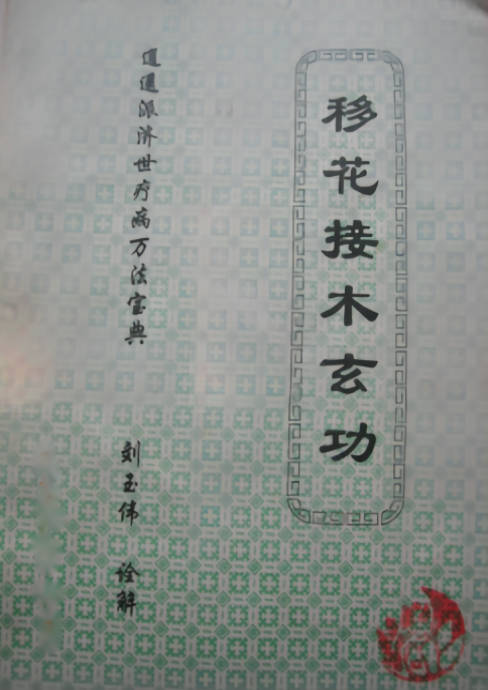 移花接木玄功
派济世疗病万法宝典
刘玉伟 诠解